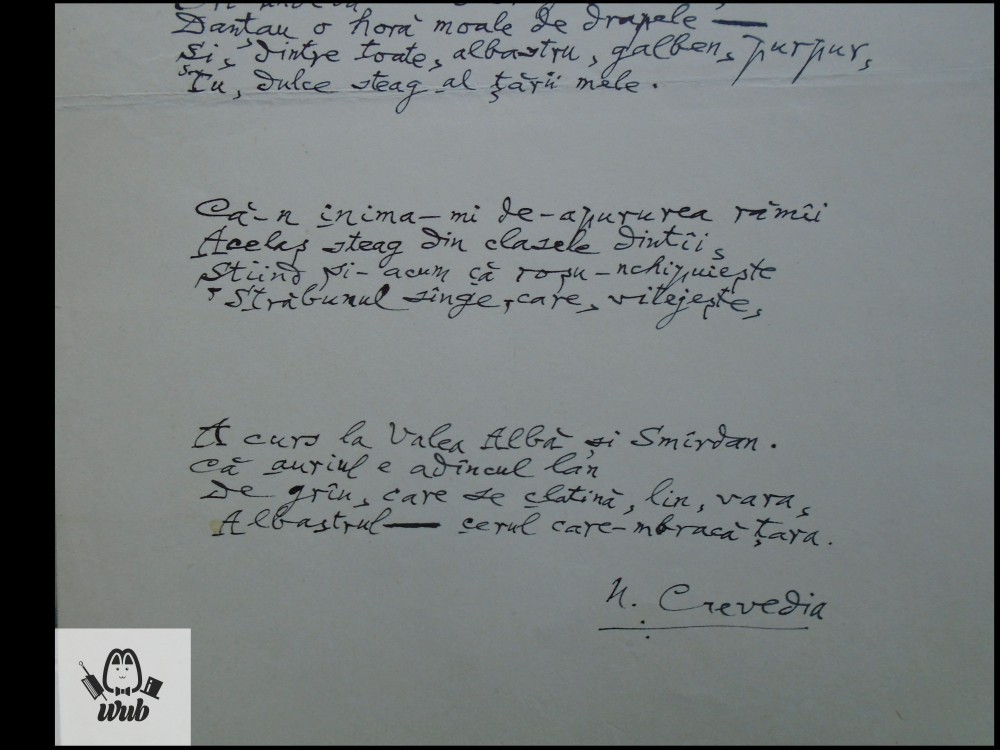 Dantau o horă moale de drapele —
Și, dintre toate, albastru, galben, purpur,
Tu, dulce steag al țării mele.
Că-n inima-mi de-apururea rămîi
Acelaș steag din clasele dintîi,
Știind și-acum că roșu-nchipuiește
Străbunul sînge, care, vitejește,
A curs la Valea Albă și Smîrdan.
Că auriul e adîncul lan
De grîu, care se clatină, lin, vara,
Albastrul — cerul care-mbracă țara.
N. Crevedia
wub